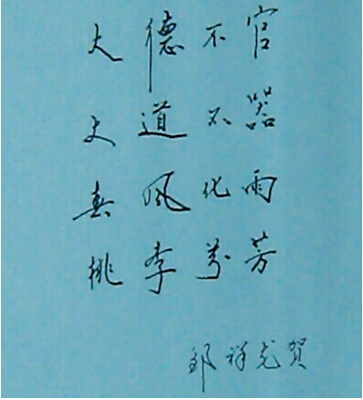 大德不官
大道不器
春风化雨
桃李芬芳
邹祥光贺